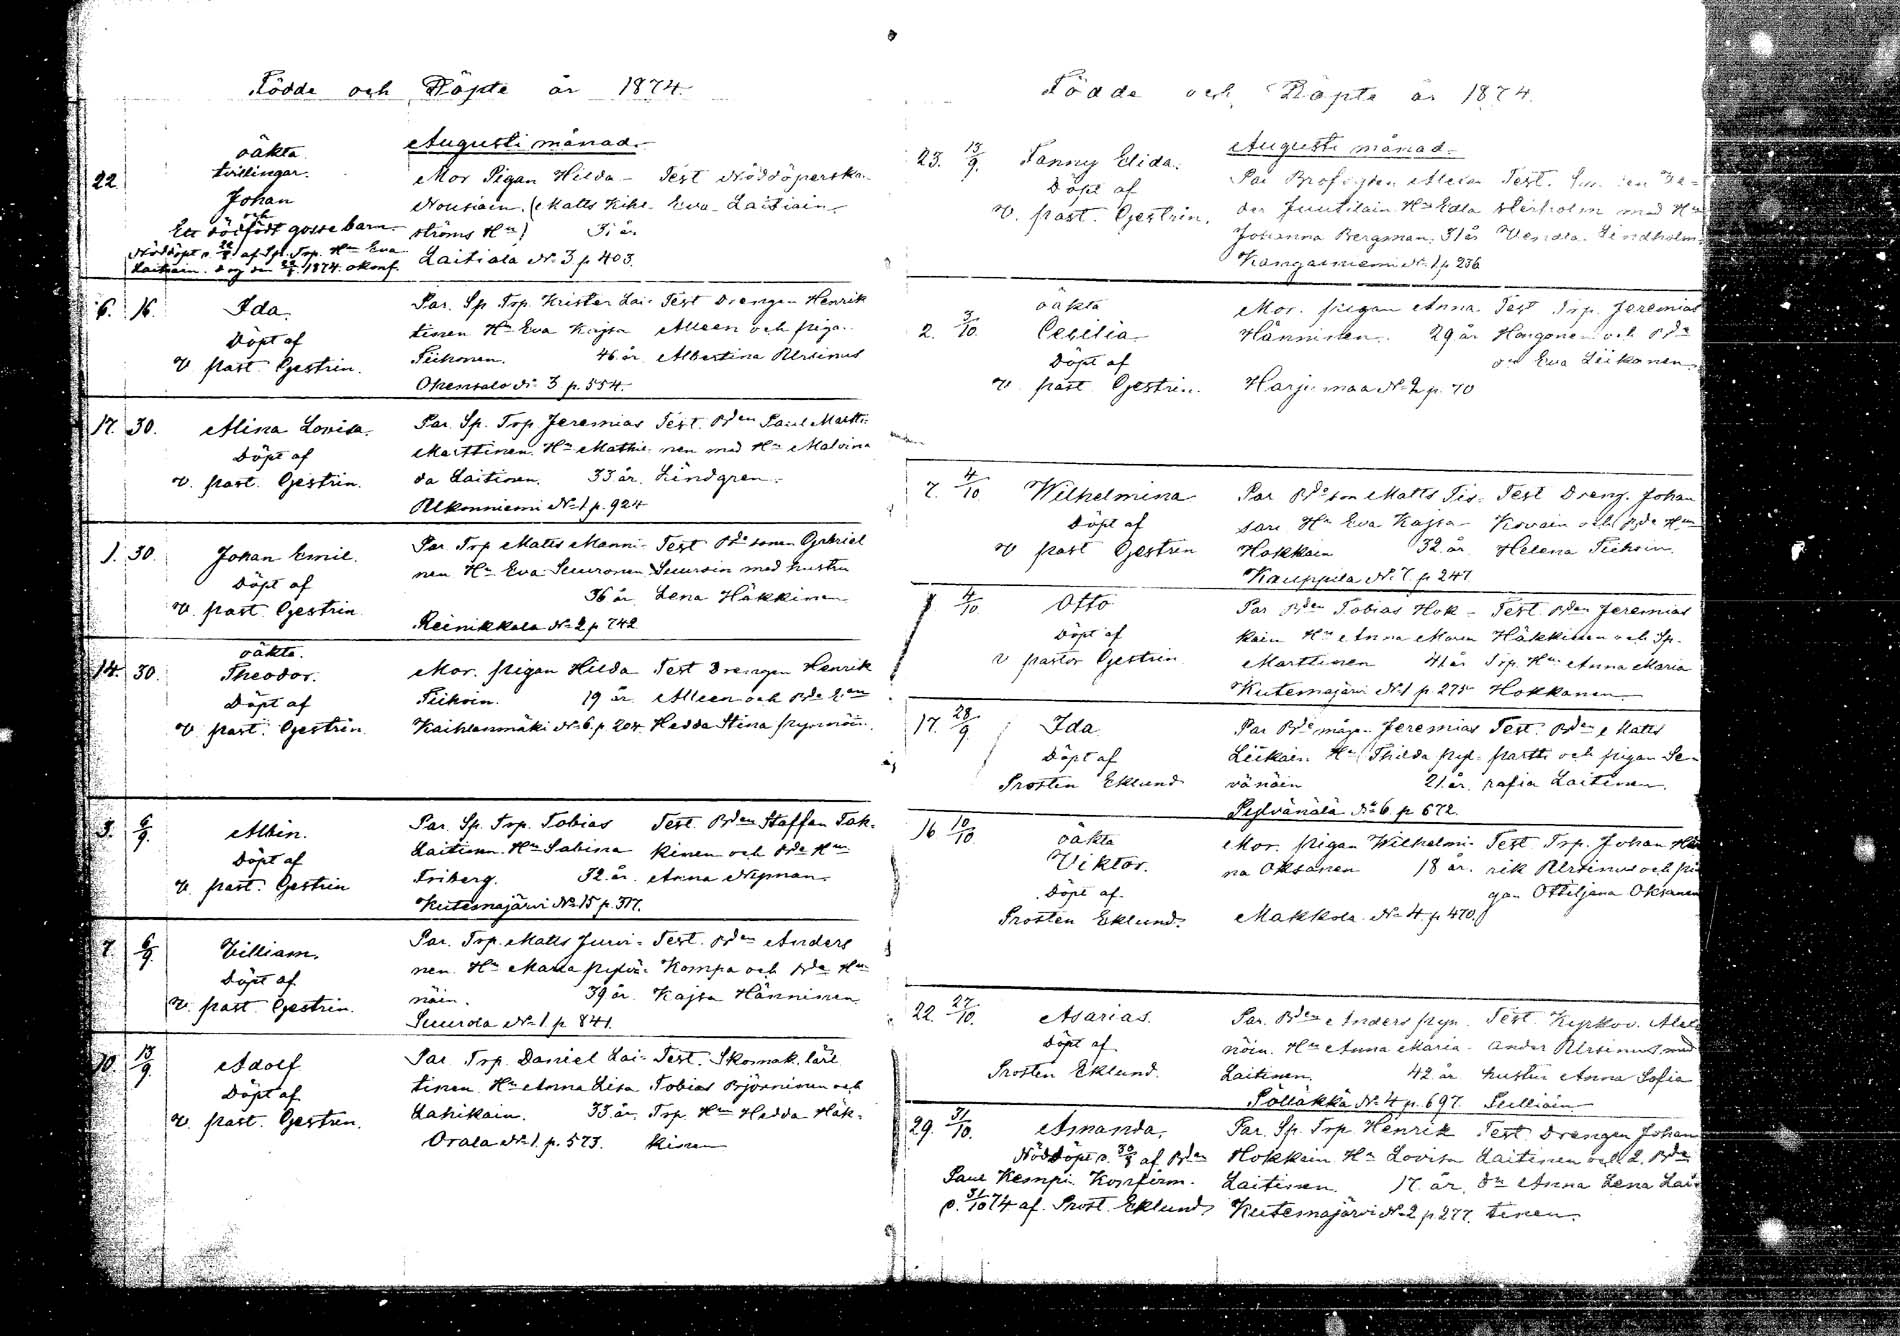 Födde och Döpte år 1874.
Augusti månad.
22.
oäkta
tvillingar.
Johan
och
Ett dödfödt gossebarn
Nöddöpt d. 22/8 af Sp. Trp. Hn Eva
Laitiain. dog den 22/8 1874. okonf.
Mor Pigan Hilda
Nousiain. (Matts Kihl-
ströms Hu)
Laitiala No 3 p 403.
Test Nöddöperska
Eva Laitiain
31 år
6. 16.
Ida.
Döpt af
v past Gestrin.
Par. Sp Trp. Krister Lai-
tinen Hu Eva Kajsa
Tiihonen. 46 år
Okensalo No 3 p. 554.
Test Drengen Henrik
Alleen och piga
Albertina Ursinus
17. 30.
Alina Lovisa.
Döpt af
v. past. Gestrin.
Par. Sp. Trp Jeremias
Marttinen. Hu Mathil-
da Laitinen. 33 år.
Ukonniemi No 1 p. 924
Test. Bden Paul Martti-
nen med Hu Malvina
Lindgren.
1. 30.
Johan Emil.
Döpt af
v. past. Gestrin
Par Trp Matts Manni-
nen Hu Eva Suuronen
36 år
Reinikkala No 2 p 742
Test Bdesonen Gabriel
Suuroin med hustru
Lena Häkkinen
14. 30.
oäkta.
Theodor.
Döpt af
v. past. Gestrin.
Mor. pigan Hilda
Tiihoin. 19 år
Kaihlanmäki No 6. p. 204
Test Drengen Henrik
Alleen och Bde
Hedda Stina pynnöin.
3. 6/9.
Albin.
Döpt af
v. past. Gestrin
Par. Sp. Trp. Tobias
Laitinen. Hu Sabina
Friberg. 32 år.
Kutemajärvi No 15 p. 317.
Test. Bden Staffan Tak-
kinen och Bde Hun
Anna Nyman.
7. 6/9
William.
Döpt af
v. past Gestrin.
Par. Trp. Matts Jurvi-
nen. Hu Maria pylvä-
näin. 39 år
Suurola No 1. p 841.
Test. Bden Anders
Kompa och Bde Hun
Kajsa Hänninen
10. 13/9.
Adolf
Döpt af
v. past. Gestrin.
Par. Trp. Daniel Lai-
tinen. Hu Anna Lisa
Lahikain. 33 år.
Orala No 1. p. 573.
Test. Skomak. lärl
Tobias Björninen och
Trp. Hun Hedda Häk-
kinen
Födde och Döpte år 1874.
Augusti månad.
23. 13/9.
Fanny Elida.
Döpt af
v. past. Gestrin.
Par Alexan
der Juutilain Hu Edla
Johanna Bergman. 31 år
Kangasniemi No 1 p 236
Test.
Åkerholm med Hu
Vendla Lindholm
2. 3/10
oäkta
Cecilia
Döpt af
v. past Gestrin.
Mor. pigan Anna
Hänninen. 29 år
Harjumaa No 2 p. 70
Test Trp. Jeremias
Hongonen och Bde
Eva Liikanen
7. 4/10
Wilhelmina
Döpt af
v past Gestrin
Par Bdeson Matts Tis-
sari Hu Eva Kajsa
Hokkain 32 år
Kauppila No 7. p 247
Test Dreng. Johan
Kovain och Bde Hun
Helena Tiihoin.
4/10
Otto
Döpt af
v pastor Gestrin
Par Bden Tobias Hok-
kain Hu Anna Maria
Marttinen 41 år
Kutemajärvi No 1 p 275
Test. Bden Jeremias
Häkkinen och Sp.
Trp. Hun Anna Maria
Hokkanen
17. 28/9
Ida.
Döpt af
Prosten Eklund
Par Bdemågen Jeremias
Liikain Hu Thilda pyl-
vänäin 21 år.
Pylvänälä No 6 p 672.
Test. Bden Matts
partti och pigan Se-
rafia Laitinen.
16 10/10
oäkta
Viktor.
Döpt af
Prosten Eklund.
Mor. pigan Wilhelmi-
na Oksanen 18 år.
Makkola No 4 p 470.
Test Trp. Johan Hen
rik Ursinus och pi
gan Ottiljana Oksanen
22. 27/10.
Asarias.
Döpt af
Prosten Eklund.
Par. Bden Anders pyn
nöin. Hu Anna Maria
Laitinen. 42 år
Pölläkkä No 4 p. 697.
Test. Kyrkov. Alex
ander Ursinus med
hustru Anna Sofia
Pulliain
29. 31/10.
Amanda.
Nöddöpt d. 30/8 af Bden
Paul Kempi. Konfirm.
d. 31/10 74 af. Prost. Eklund
Par. Sp. Trp Henrik
Hokkain Hu Lovisa
Laitinen. 17 år.
Kutemajärvi No 2 p 277.
Test Drengen Johan
Laitinen och Bde
Anna Lena Lai-
tinen.